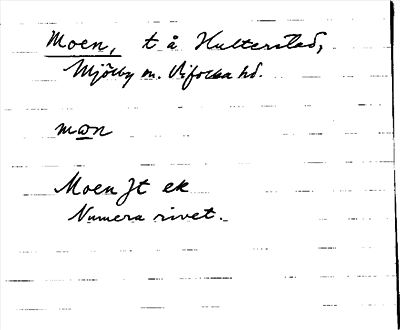 Moen, t å Hulterstad,
Mjölby sn. Vifolka hd.
mon
Moen Jt ek
Numera rivet.